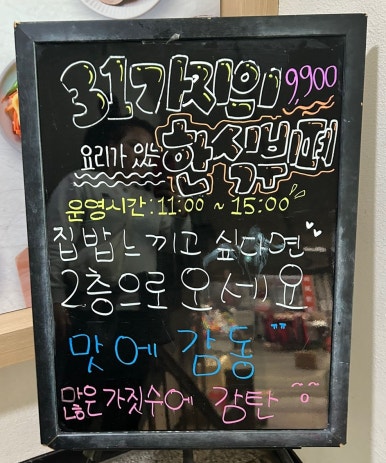 31가지의 9,900
요리가 있는 한식뷔페
운영시간 : 11:00 ~ 15:00
집밥느끼고 싶다면
2층으로 오세요
맛에 감동
많은가짓수에 감탄